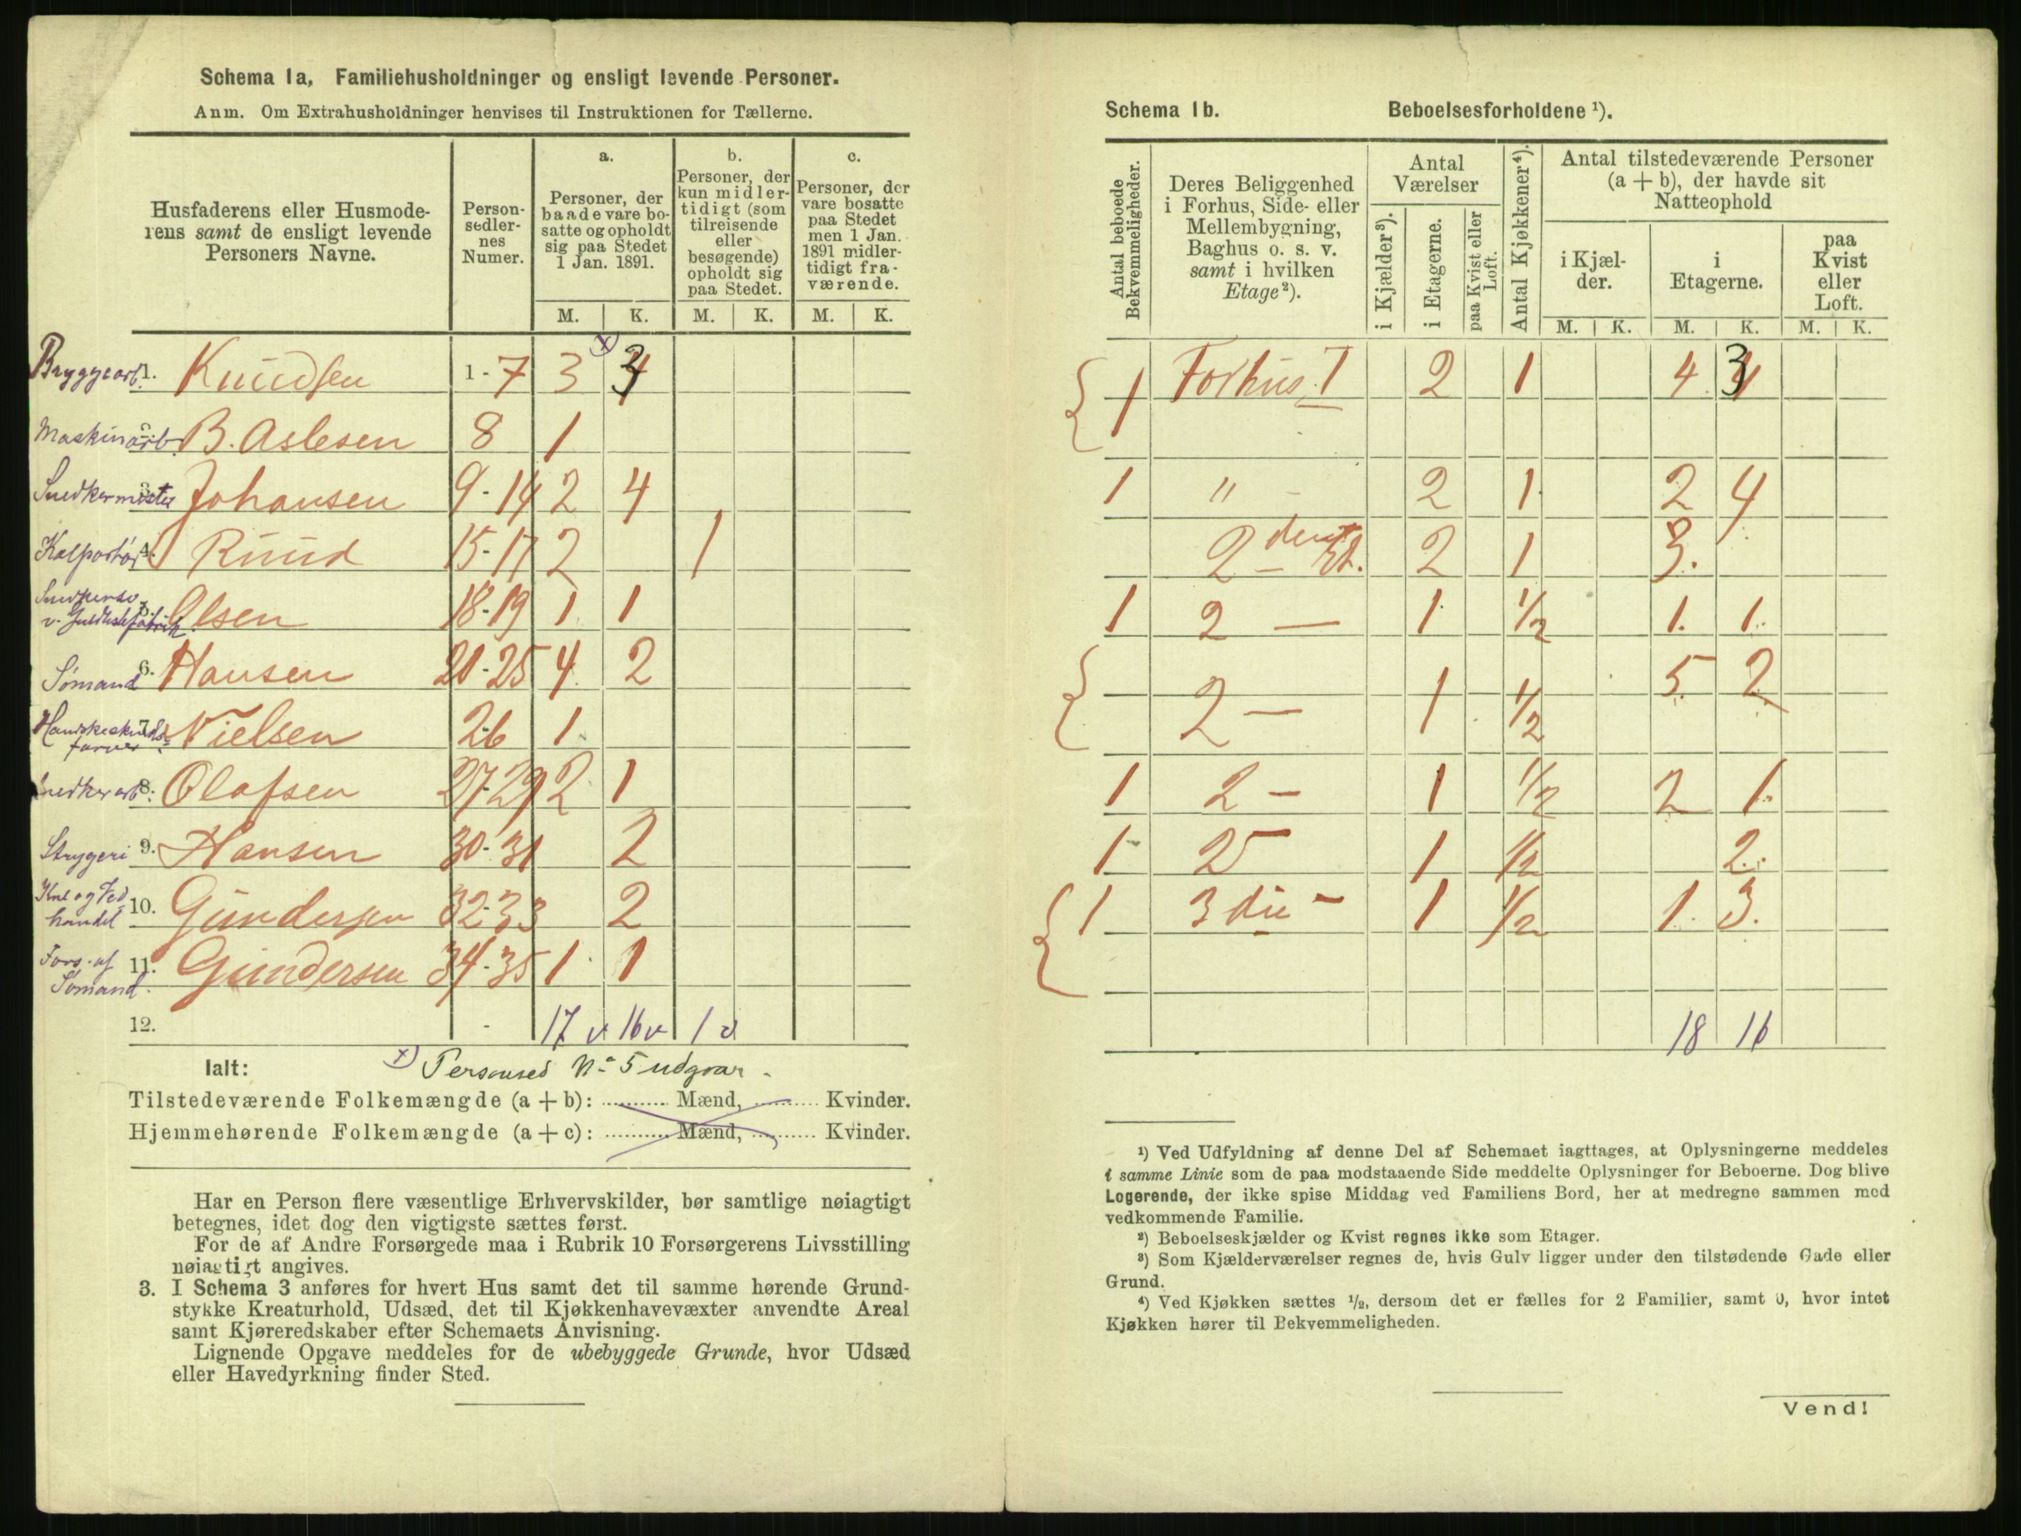 Schema 1a, Familiehusholdninger og ensligt levende Personer.
Anm. Om Extrahusholdninger henvises til Instruktionen for Tællerne.
Husfaderens eller Husmoderens samt de ensligt levende Personers Navne.
Personsedlernes Numer.
a. Personer, der baade vare bosatte og opholdt sig paa Stedet 1 Jan. 1891.
b. Personer, der kun midlertidigt (som tilreisende eller besøgende) opholdt sig paa Stedet.
c. Personer, der vare bosatte paa Stedet men 1 Jan. 1891 midlertidigt fraværende.
M. K. M. K. M. K.
Bryggearb. 1. Knudsen 1-7 3 x) 3
Maskinarb. 2. B. Aslesen 8 1
Snedkermester 3. Johansen 9-14 2 4
Kolportør 4. Ruud 15-17 2 1
5. Olsen 18-19 1 1
Sømand 6. Hansen 20-25 4 2
7. Nielsen 26 1
Snedkerarb. 8. Olafsen 27-29 2 1
Strygeri 9. Hansen 30-31 2
Kul og Ved handel 10. Gundersen 32-33 2
Fors. af Sømand. 11. Gundersen 34-35 1 1
12. - 17 v 16 v 1 v
Ialt: x) Personsed No 5 udgaar.
Tilstedeværende Folkemængde (a + b): .......... Mænd, .......... Kvinder.
Hjemmehørende Folkemængde (a + c): .......... Mænd, .......... Kvinder.
Har en Person flere væsentlige Erhvervskilder, bør samtlige nøiagtigt
betegnes, idet dog den vigtigste sættes først.
For de af Andre Forsørgede maa i Rubrik 10 Forsørgerens Livsstilling
nøiagtigt angives.
3. I Schema 3 anføres for hvert Hus samt det til samme hørende Grund-
stykke Kreaturhold, Udsæd, det til Kjøkkenhavevæxter anvendte Areal
samt Kjøreredskaber efter Schemaets Anvisning.
Lignende Opgave meddeles for de ubebyggede Grunde, hvor Udsæd
eller Havedyrkning finder Sted.
Schema 1b. Beboelsesforholdene ¹).
Antal beboede Bekvemmeligheder.
Deres Beliggenhed i Forhus, Side- eller Mellembygning, Baghus o. s. v. samt i hvilken Etage²).
Antal Værelser
i Kjælder³). i Etagerne. paa Kvist eller Loft.
Antal Kjøkkener⁴).
Antal tilstedeværende Personer (a + b), der havde sit Natteophold
i Kjælder. i Etagerne. paa Kvist eller Loft.
M. K. M. K. M. K.
1 Forhus. I 2 1 4 3
1 " - 2 1 2 4
2 den Et. 2 1 3.
1 2 — 1 1/2 1. 1.
2 — 1 1/2 5 2
1 2 — 1 1/2 2 1.
1 2 — 1 1/2 2.
1 3die — 1 1/2 1. 3.
18 16
¹) Ved Udfyldning af denne Del af Schemaet iagttages, at Oplysningerne meddeles
i samme Linie som de paa modstaaende Side meddelte Oplysninger for Beboerne. Dog blive
Logerende, der ikke spise Middag ved Familiens Bord, her at medregne sammen med
vedkommende Familie.
²) Beboelseskjælder og Kvist regnes ikke som Etager.
³) Som Kjælderværelser regnes de, hvis Gulv ligger under den tilstødende Gade eller
Grund.
⁴) Ved Kjøkken sættes ½, dersom det er fælles for 2 Familier, samt 0, hvor intet
Kjøkken hører til Bekvemmeligheden.
Vend!